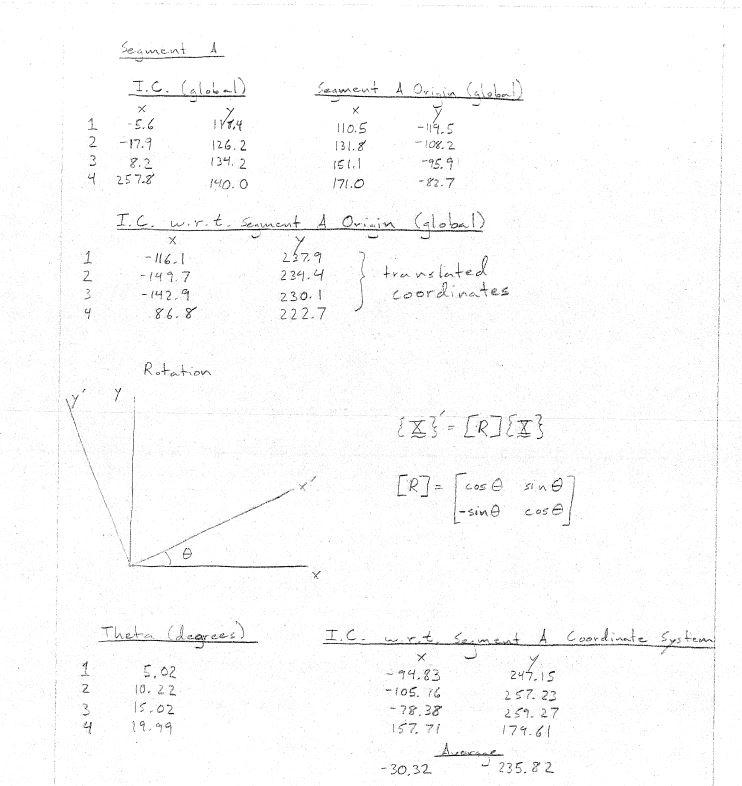 Segment A
I.C. (global) Segment A Origin (global)
x y x y
1 -5.6 118.4 110.5 -119.5
2 -17.9 126.2 131.8 -108.2
3 8.2 134.2 151.1 -95.9
4 257.8 140.0 171.0 -82.7
I.C. w.r.t. Segment A Origin (global)
x y
1 -116.1 237.9
2 -149.7 234.4
3 -142.9 230.1
4 86.8 222.7
} translated
coordinates
Rotation
y' y
x'
θ
x
{X}' = [R]{X}
[R] = [cosθ sinθ
-sinθ cosθ]
Theta (degrees)
1 5.02
2 10.22
3 15.02
4 19.99
I.C. w.r.t. Segment A Coordinate System
x y
-94.83 247.15
-105.76 257.23
-78.38 259.27
157.71 179.61
Average
-30.32 235.82